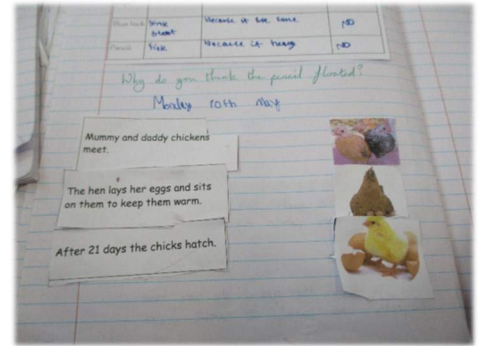 sink
Because it
NO
Pencil
Sink
Because it heavy
NO
Why do you think the pencil floated?
Monday 10th May
Mummy and daddy chickens
meet.
The hen lays her eggs and sits
on them to keep them warm.
After 21 days the chicks hatch.